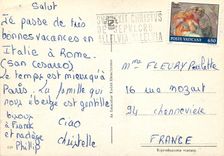 Salut
Je passe de très
bonnes vacances en
Italie à Rome.
(San Cesareo)
Le temps est mieux qu'à
Paris. La famille qui
nous héberge est gentille.
bisous
à Franck
et nadège
Philip
Ciao
christelle
CHRISTUS
SEPVLCRO
POSTE VATICANE
650
Mme FLEURY Paulette
16 rue mozart
94 chennevière
FRANCE